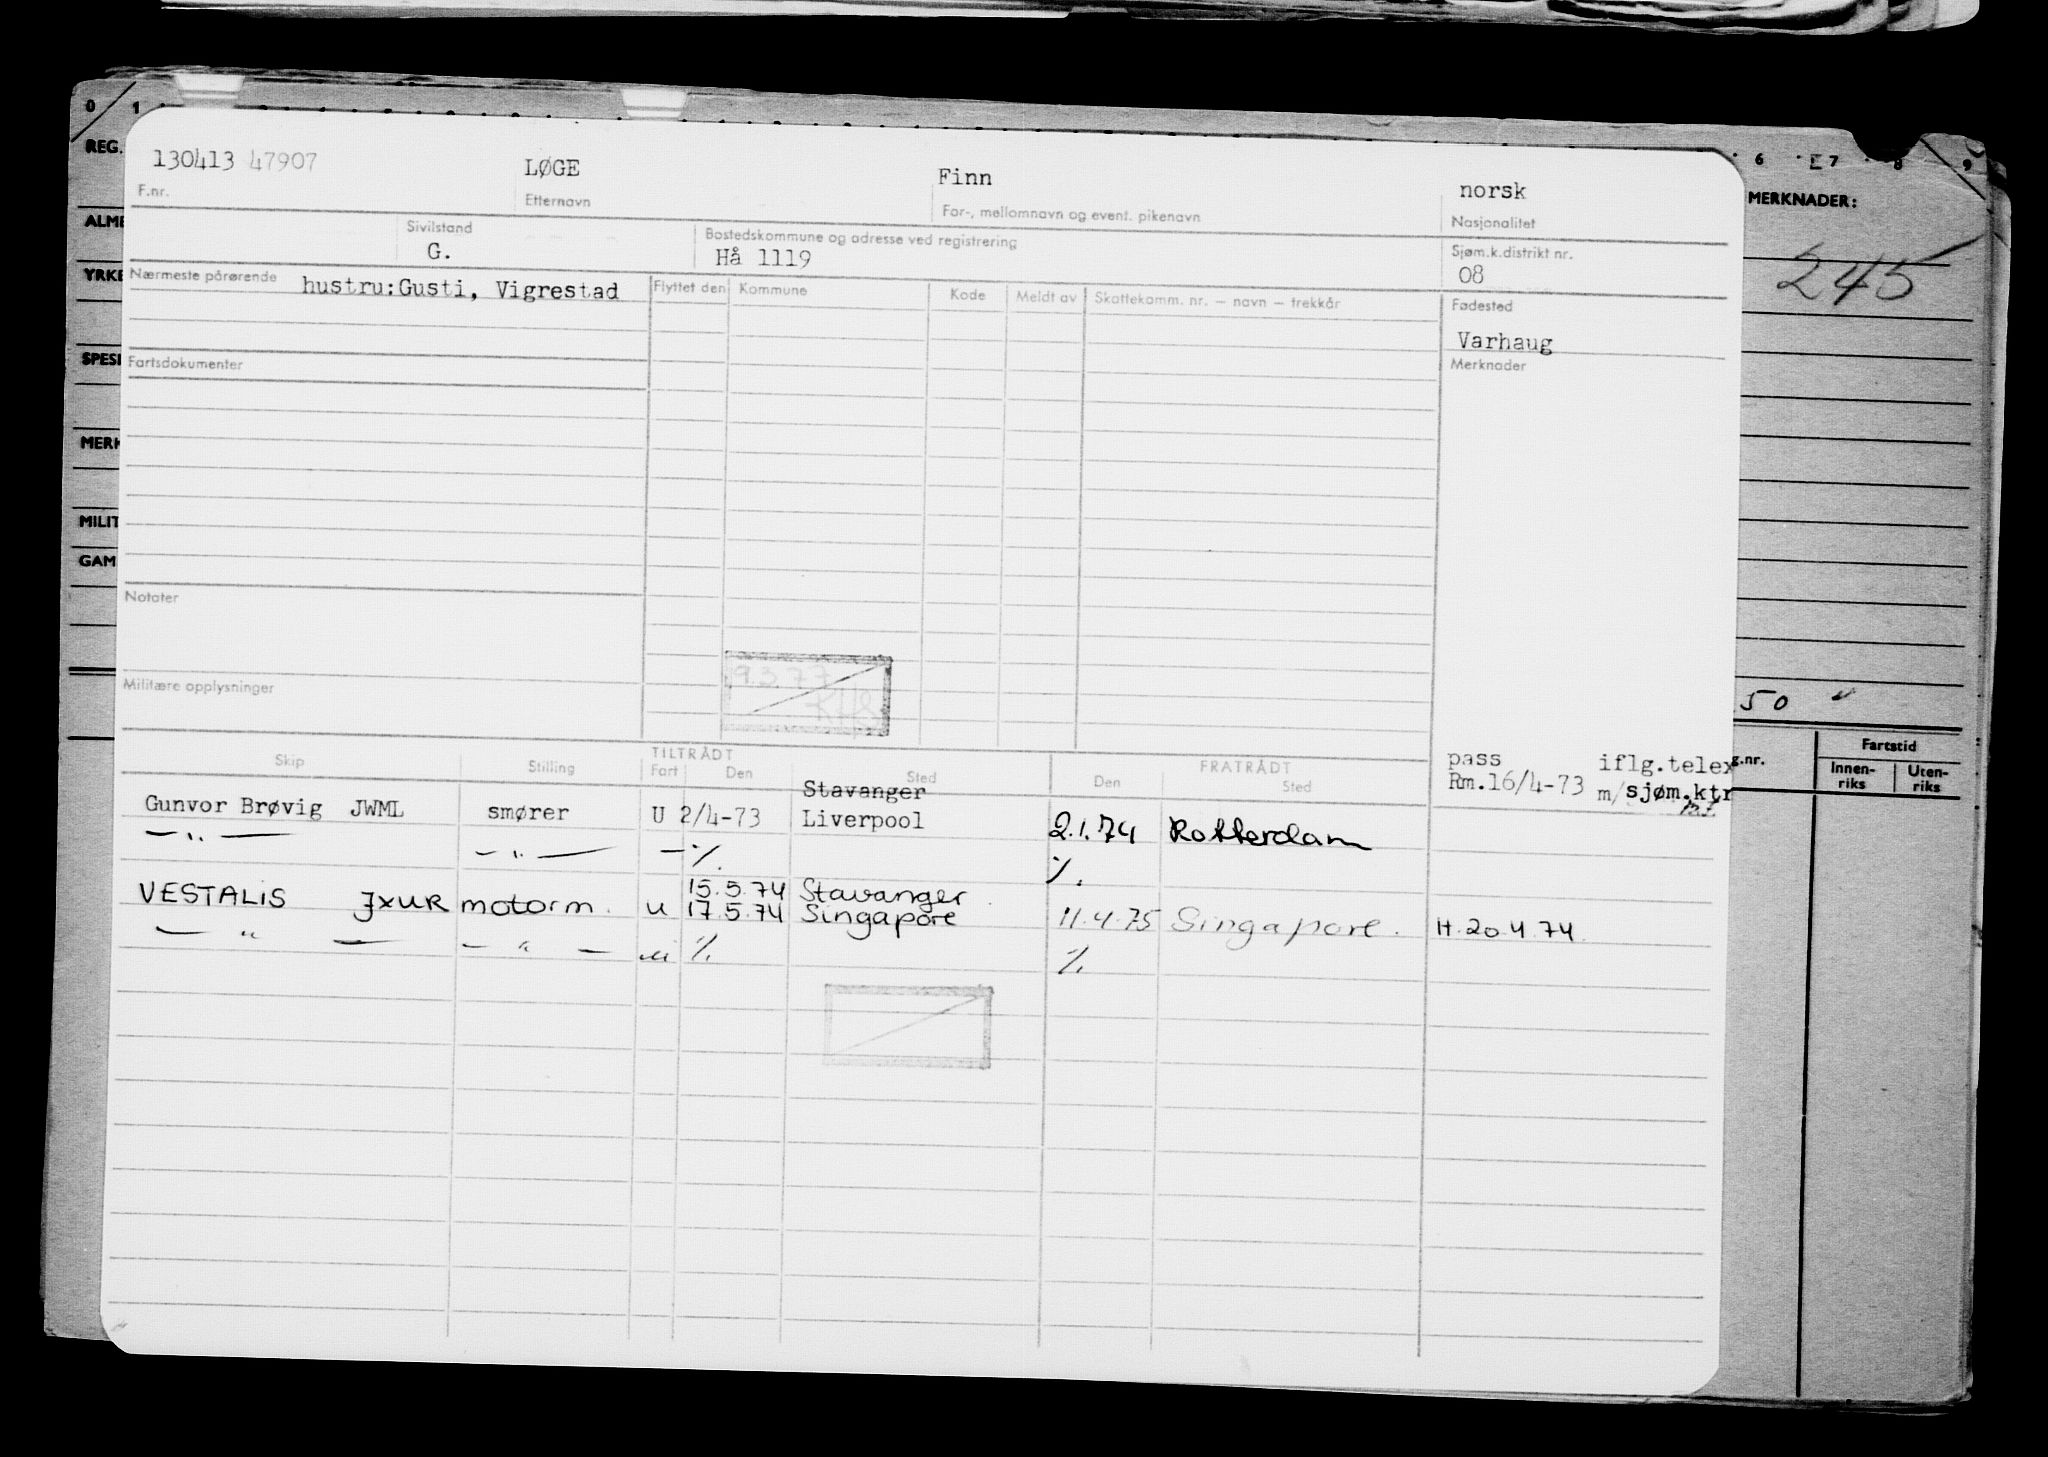 0 1 6 7 8 9
REG.
MERKNADER:
245
ALME
YRKE
SPESI
MERK
MILIT
GAM
50 "
g.nr.
Fartstid
Innen-
riks
Uten-
riks
130413 47907 LØGE Finn norsk
F.nr. Etternavn For-, mellomnavn og event. pikenavn Nasjonalitet
Sivilstand Bostedskommune og adresse ved registrering Sjøm.k.distrikt nr.
G. Hå 1119 08
Nærmeste pårørende hustru:Gusti, Vigrestad Flyttet den Kommune Kode Meldt av Skattekomm. nr. – navn – trekkår Fødested
Varhaug
Fartsdokumenter Merknader
Notater
9.3.77
Militære opplysninger
Skip Stilling TILTRÅDT FRATRÅDT
Fart Den Sted Den Sted
pass iflg.telex
Rm.16/4-73 m/sjøm.ktr
Stavanger
Gunvor Brøvig JWML smører U 2/4-73 Liverpool 2.1.74 Rotterdam
— " — — " — — ./. ./.
15.5.74 Stavanger
VESTALIS JXUR motorm. u 17.5.74 Singapore 11.4.75 Singapore. H.20.4.74.
— " — — " — u ./. ./.